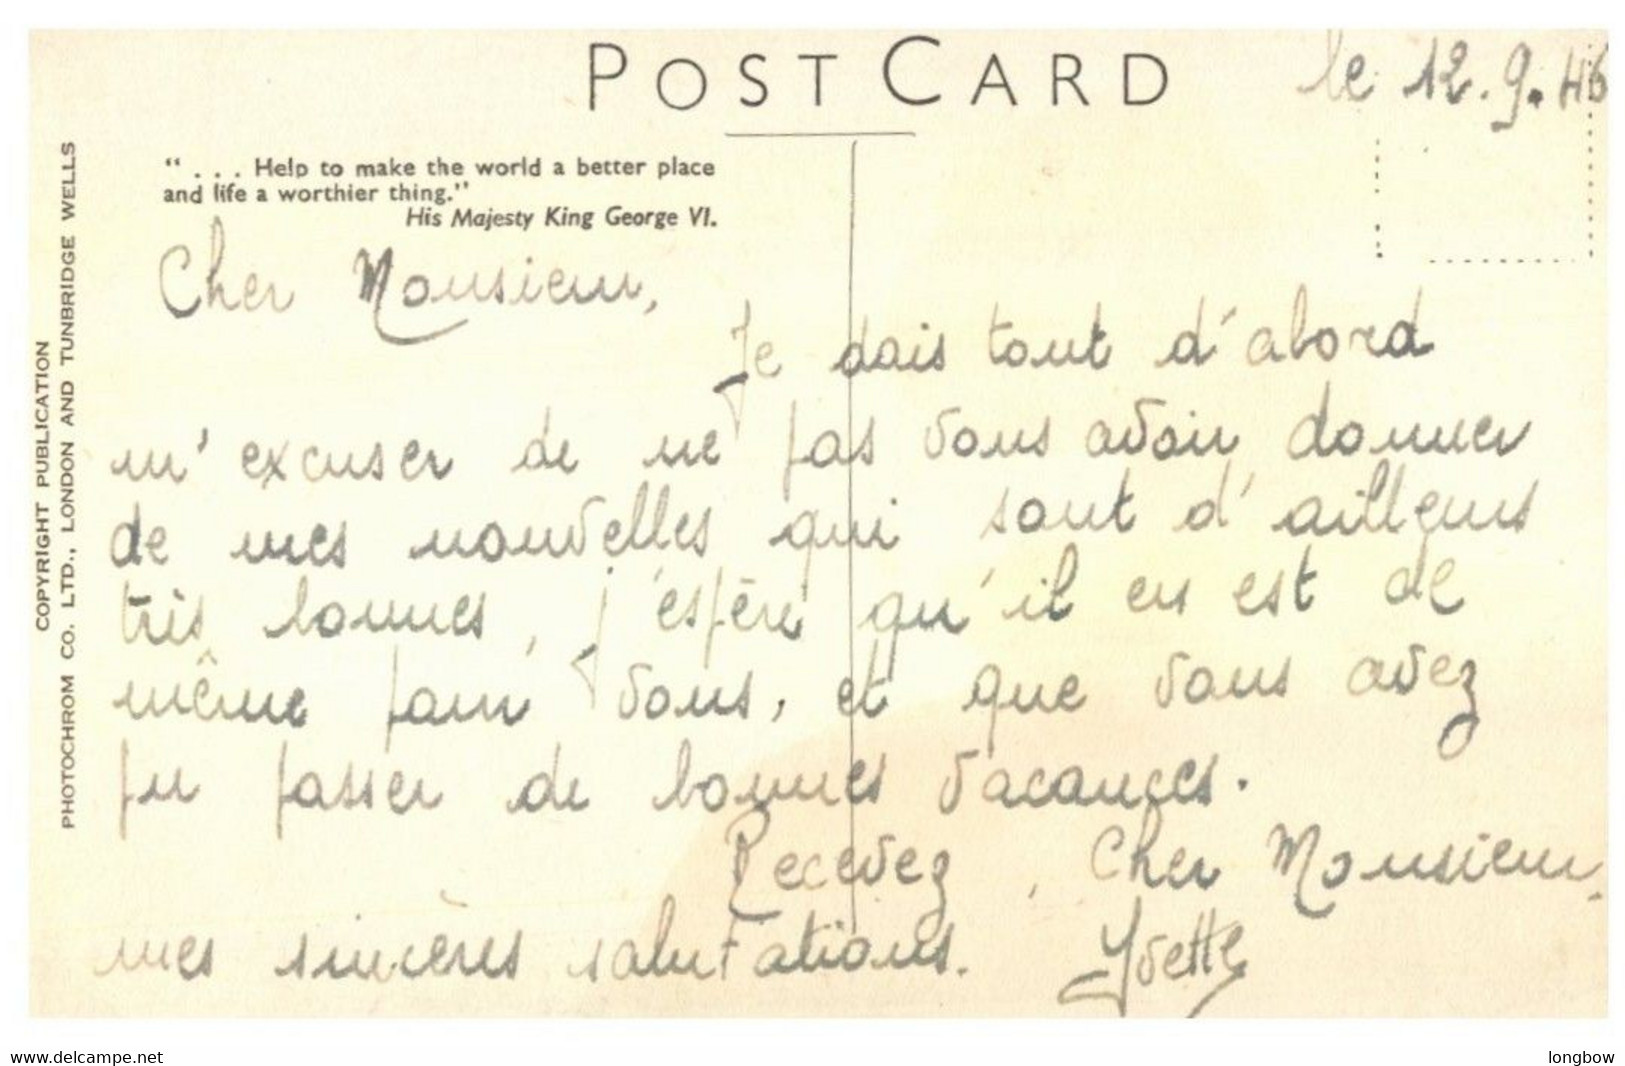 POST CARD
le 12.9.46
COPYRIGHT PUBLICATION
PHOTOCHROM CO. LTD., LONDON AND TUNBRIDGE WELLS
“ . . . Help to make the world a better place
and life a worthier thing.”
His Majesty King George VI.
Cher Monsieur,
Je dois tout d'abord
m'excuser de ne pas vous avoir donner
de mes nouvelles qui sont d'ailleurs
très bonnes, j'espère qu'il en est de
même pour vous, et que vous avez
pu passer de bonnes vacances.
Recevez, Cher Monsieur,
mes sincères salutations. Yvette
www.delcampe.net
longbow